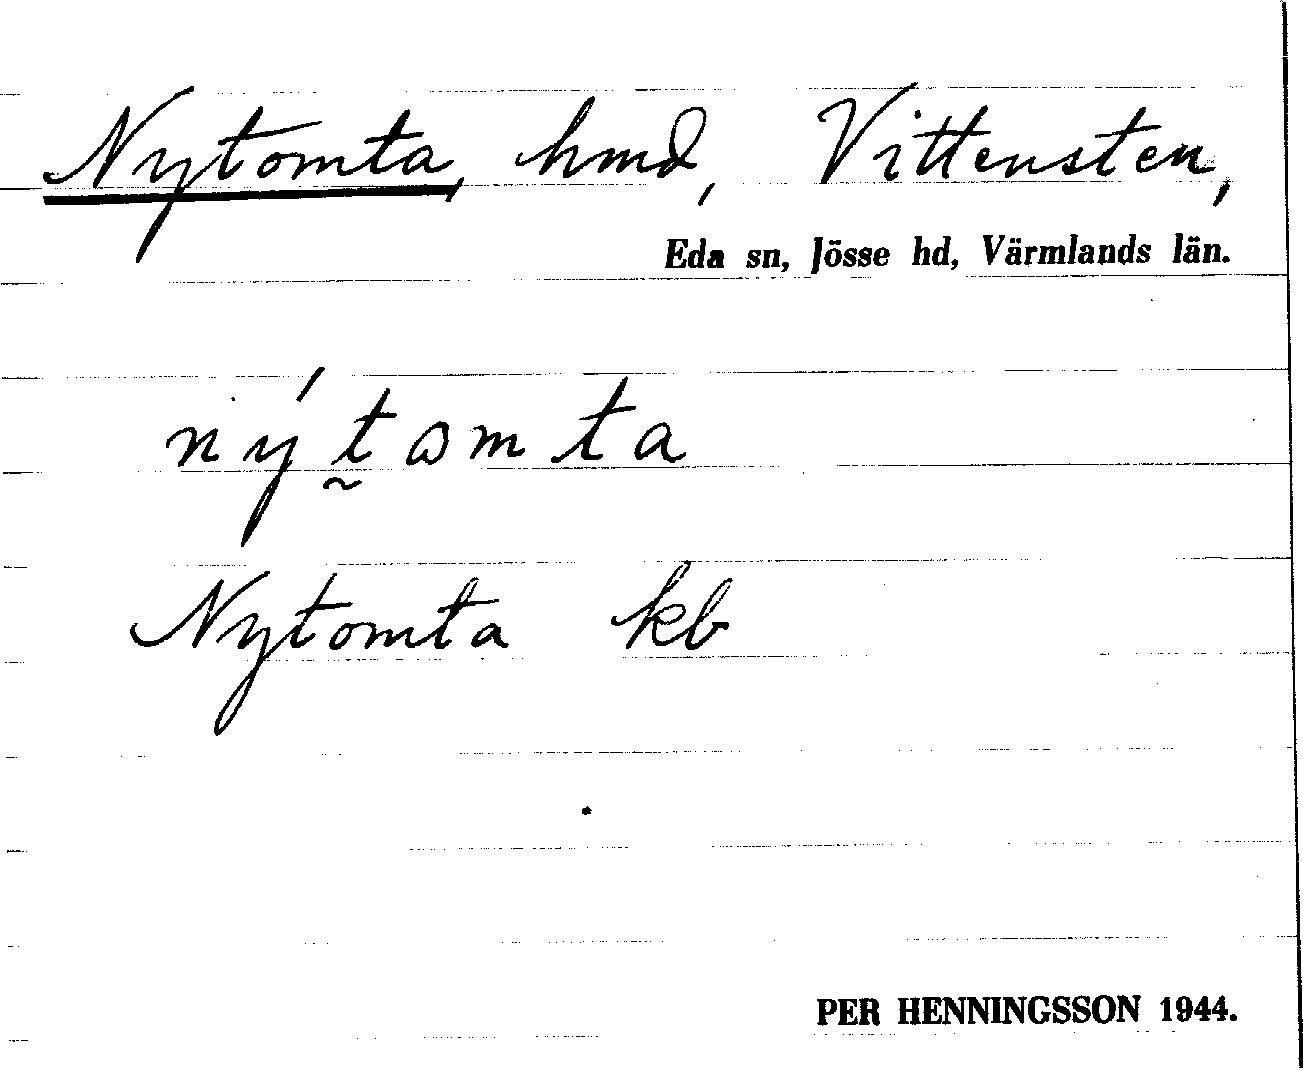 Nytomta, hmd, Vittensten,
Eda sn, Jösse hd, Värmlands län.
ný t̰ɷmta
Nytomta kb
PER HENNINGSSON 1944.